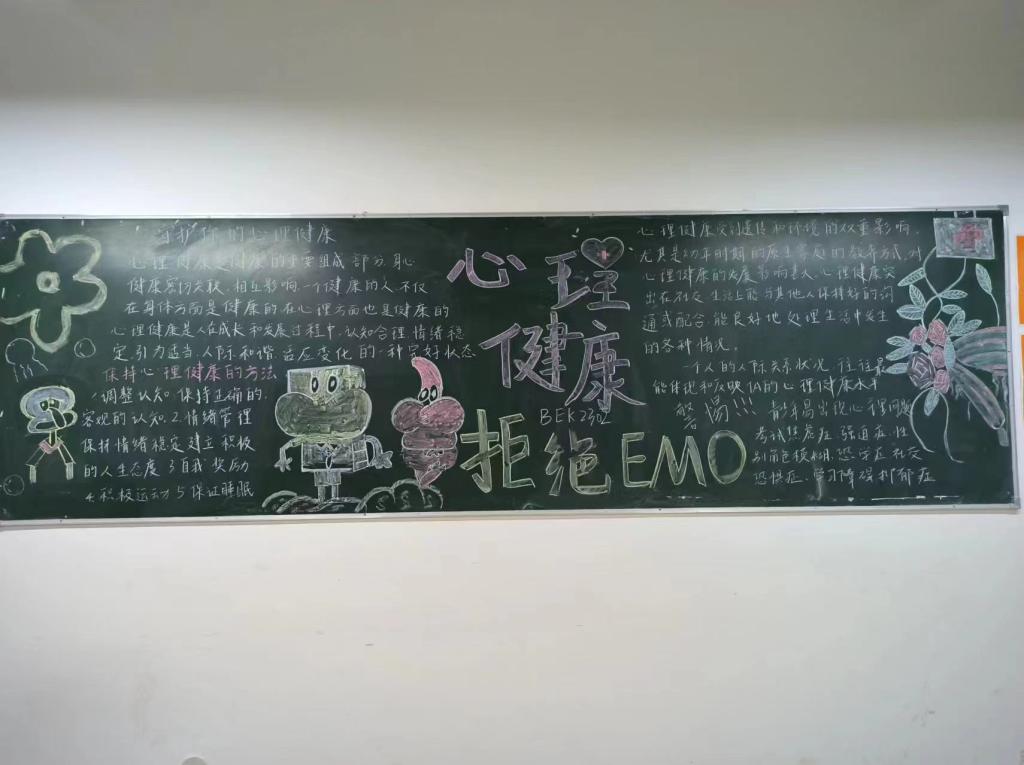 守护你的心理健康
心理健康是健康的重要组成部分 身
健康密切关联 相互影响 一个健康的人 不仅
在身体方面是健康的 在心理方面也是健康的
心理健康是人在成长和发展过程中, 认知合理 情绪稳
定, 引为适当、人际和谐, 适应变化 的一种完好状态
保持心理健康的方法
1 调整认知 保持正确的.
客观的认知. 2. 情绪管理
保持情绪稳定 建立积极
的人生态度 3 自我奖励
4 积极运动 5 保证睡眠
心理
健康
BEK2302
拒绝EMO
心理健康受到遗传和环境的双重影响
尤其是幼年时期的原生家庭的教养方式, 对
心理健康的发展影响甚大. 心理健康突
出在社交 生活上能与其他人保持好的沟
通或配合, 能良好地处理生活中发生
的各种情况。
一个人的人际关系状况 往往最
能体现和反映他的心理健康水平
警惕!!! 青少年易出现心理问题
考试焦虑症 强迫症. 性
别角色模糊. 恐学症 社交
恐惧症、学习障碍 抑郁症